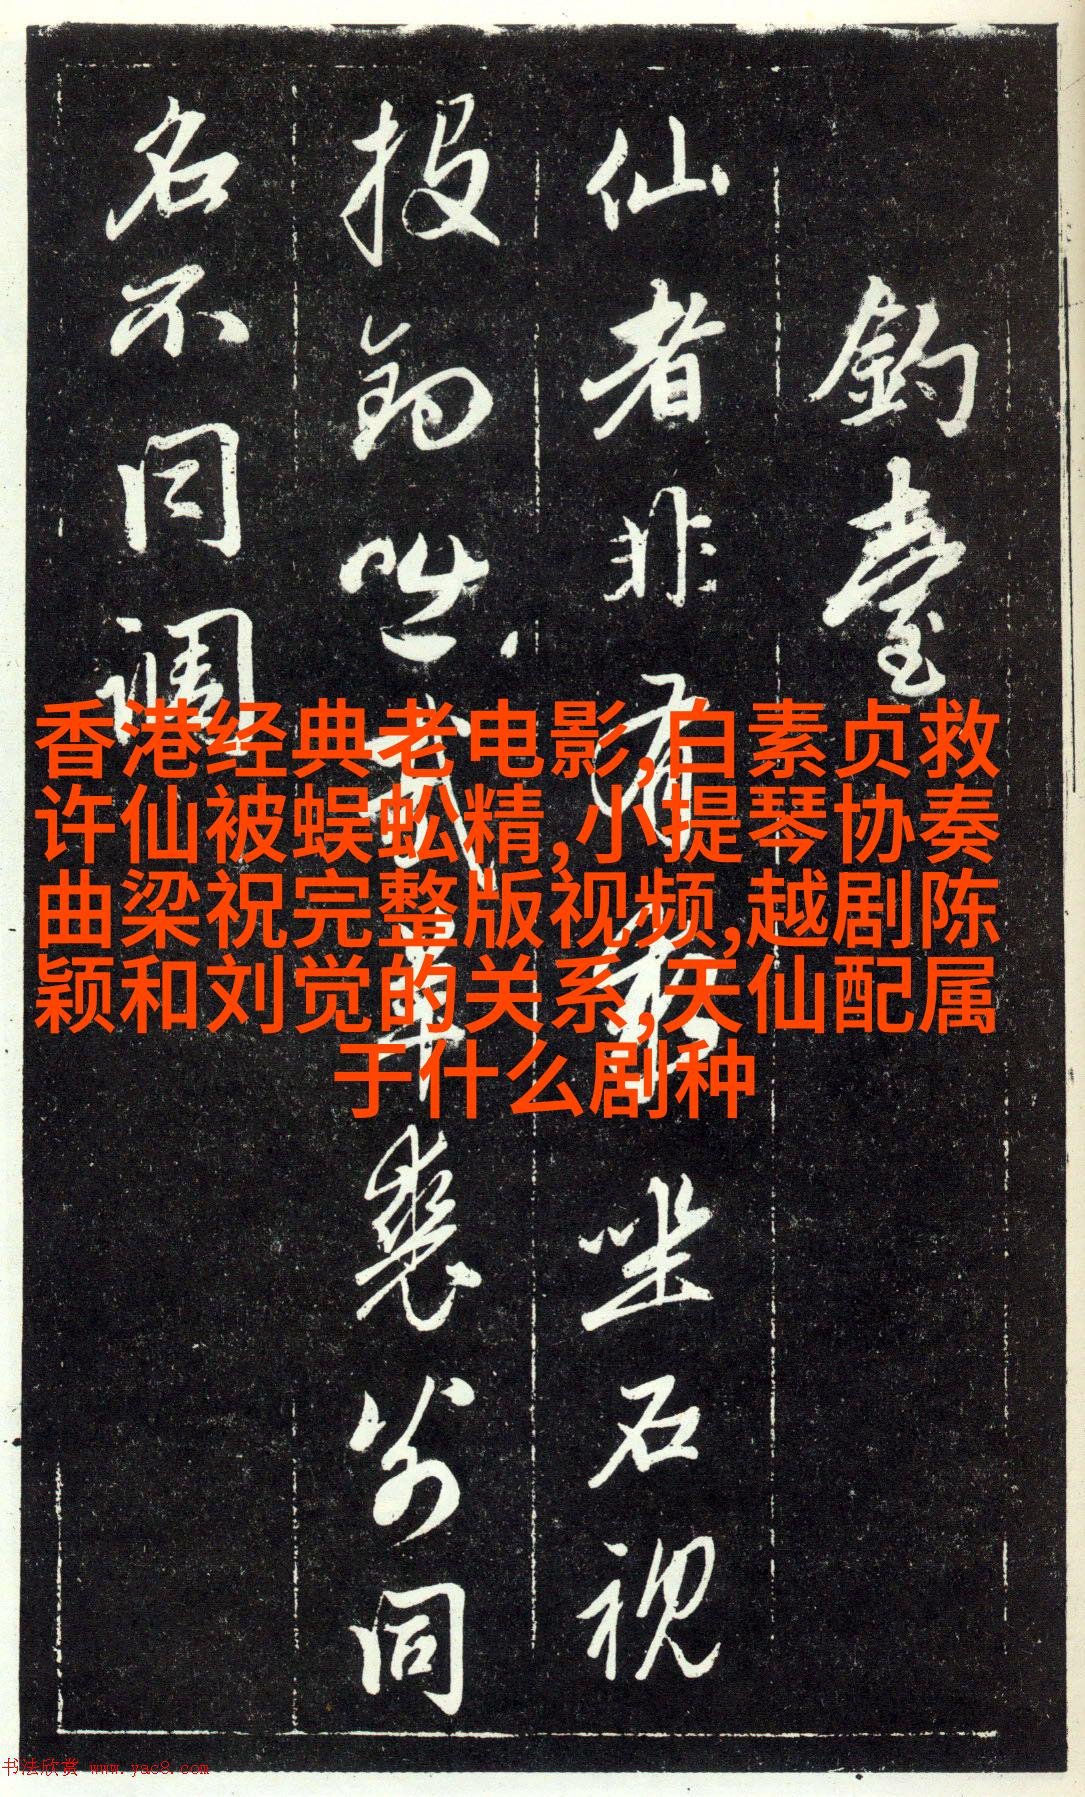 釣臺
仙者非有坐石視
投釣咄裘同
名不同調
香港经典老电影,白素贞救
许仙被蜈蚣精,小提琴协奏
曲梁祝完整版视频,越剧陈
颖和刘觉的关系,天仙配属
于什么剧种
书法欣赏 www.yac8.com